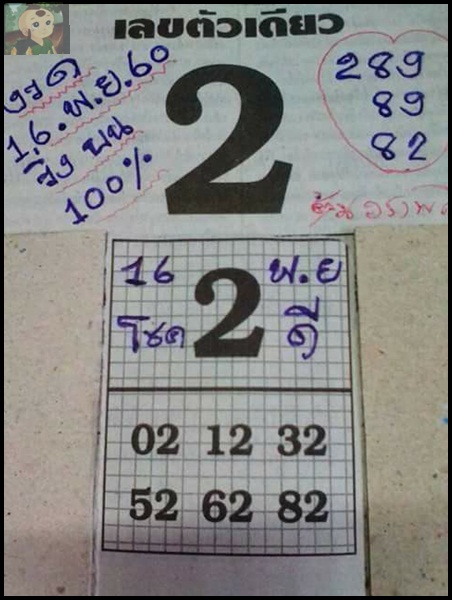 เลขตัวเดียว
งวด
16.พ.ย.60
วิ่ง บน
100%
2
289
89
82
16 พ.ย
2
โชค ดี
02 12 32
52 62 82